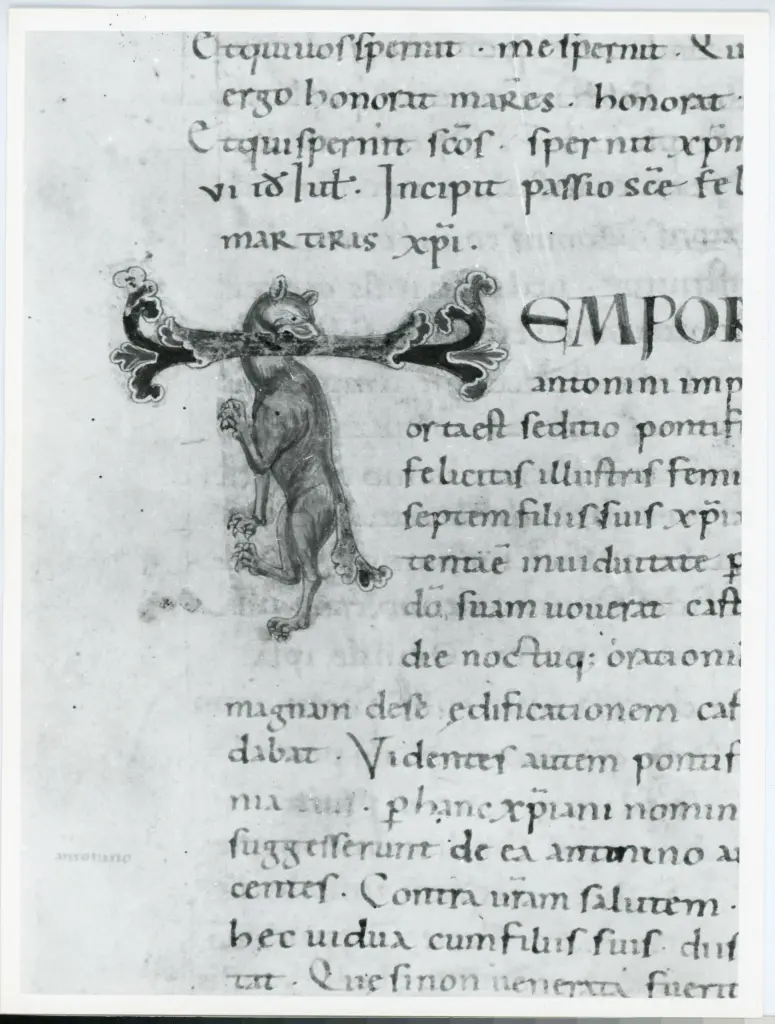 Etquiuos spernit · me spernit · Qu
ergo honorat martires · honorat
Et qui spernit sc̄os · spernit xp̄m
vi id̄ Iul̄· Incipit passio sc̄e fel
MARTIRIS xp̄i ·
TEMPOR
antonini imp
orta est seditio pontif
felicitas illustris femi
septem filiis suis xp̄i
dō suam uouerat cast
die noctuq; orationi
magnam de se edificationem
dabat · Videntes autem pontif
nia · p hanc xp̄iani nomin
suggesserunt de ea antonino a
centes · Contra uram salutem ·
hec uidua cum filiis suis
tat · Que si non uenerata fuerit
antonino